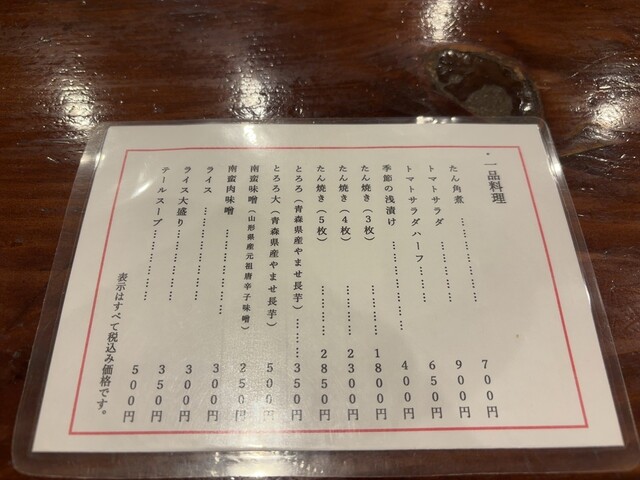 一品料理
たん角煮………………700円
トマトサラダ…………900円
トマトサラダハーフ……650円
季節の浅漬け……………400円
たん焼き(3枚)…………1800円
たん焼き(4枚)…………2300円
たん焼き(5枚)…………2850円
とろろ(青森県産やませ長芋)………350円
とろろ大(青森県産やませ長芋)500円
南蛮味噌(山形県産元祖唐辛子味噌)250円
南蛮肉味噌………………300円
ライス……………………300円
ライス大盛り……………350円
テールスープ……………500円
表示はすべて税込み価格です。